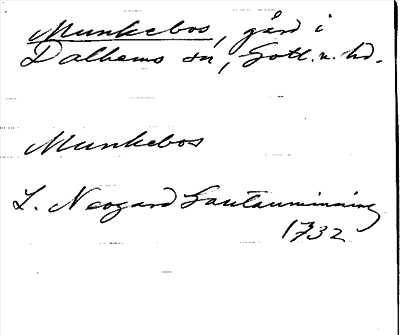 Munkebos, gård i
Dalhems sn, Gotl. n. hd.
Munkebos
L. Neogard Gautauminning
1732